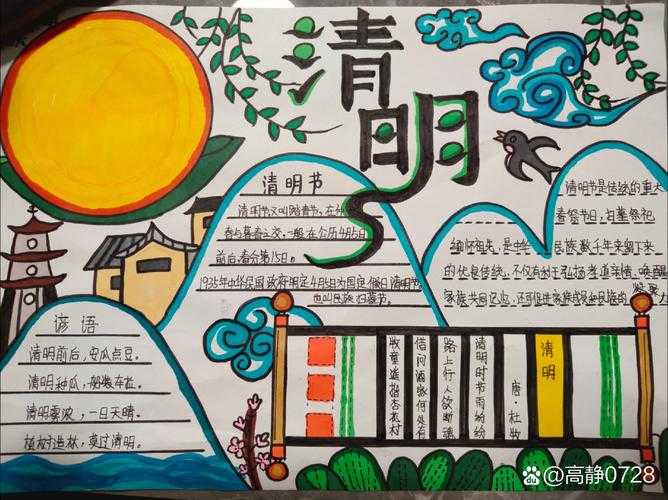 清明
清明节
清明节又叫踏青节,在仲
春与暮春之交,一般在公历4月5日
前后,春分第15日。
1935年中华民国政府明定4月5日为国定假日清明节
也叫民族扫墓节。
清明节是传统的重大
春祭节日,扫墓祭祀、
缅怀祖先,是中华民族数千年来留下来
的优良传统,不仅有利于弘扬孝道亲情、唤醒
家族共同记忆,还可促进家族成员和民族的
凝聚
谚语
清明前后,安瓜点豆。
清明种瓜,船装车拉。
清明雾浓,一日天晴。
植树造林,莫过清明。
清明
唐·杜牧
清明时节雨纷纷
路上行人欲断魂
借问酒家何处有
牧童遥指杏花村
@高静0728